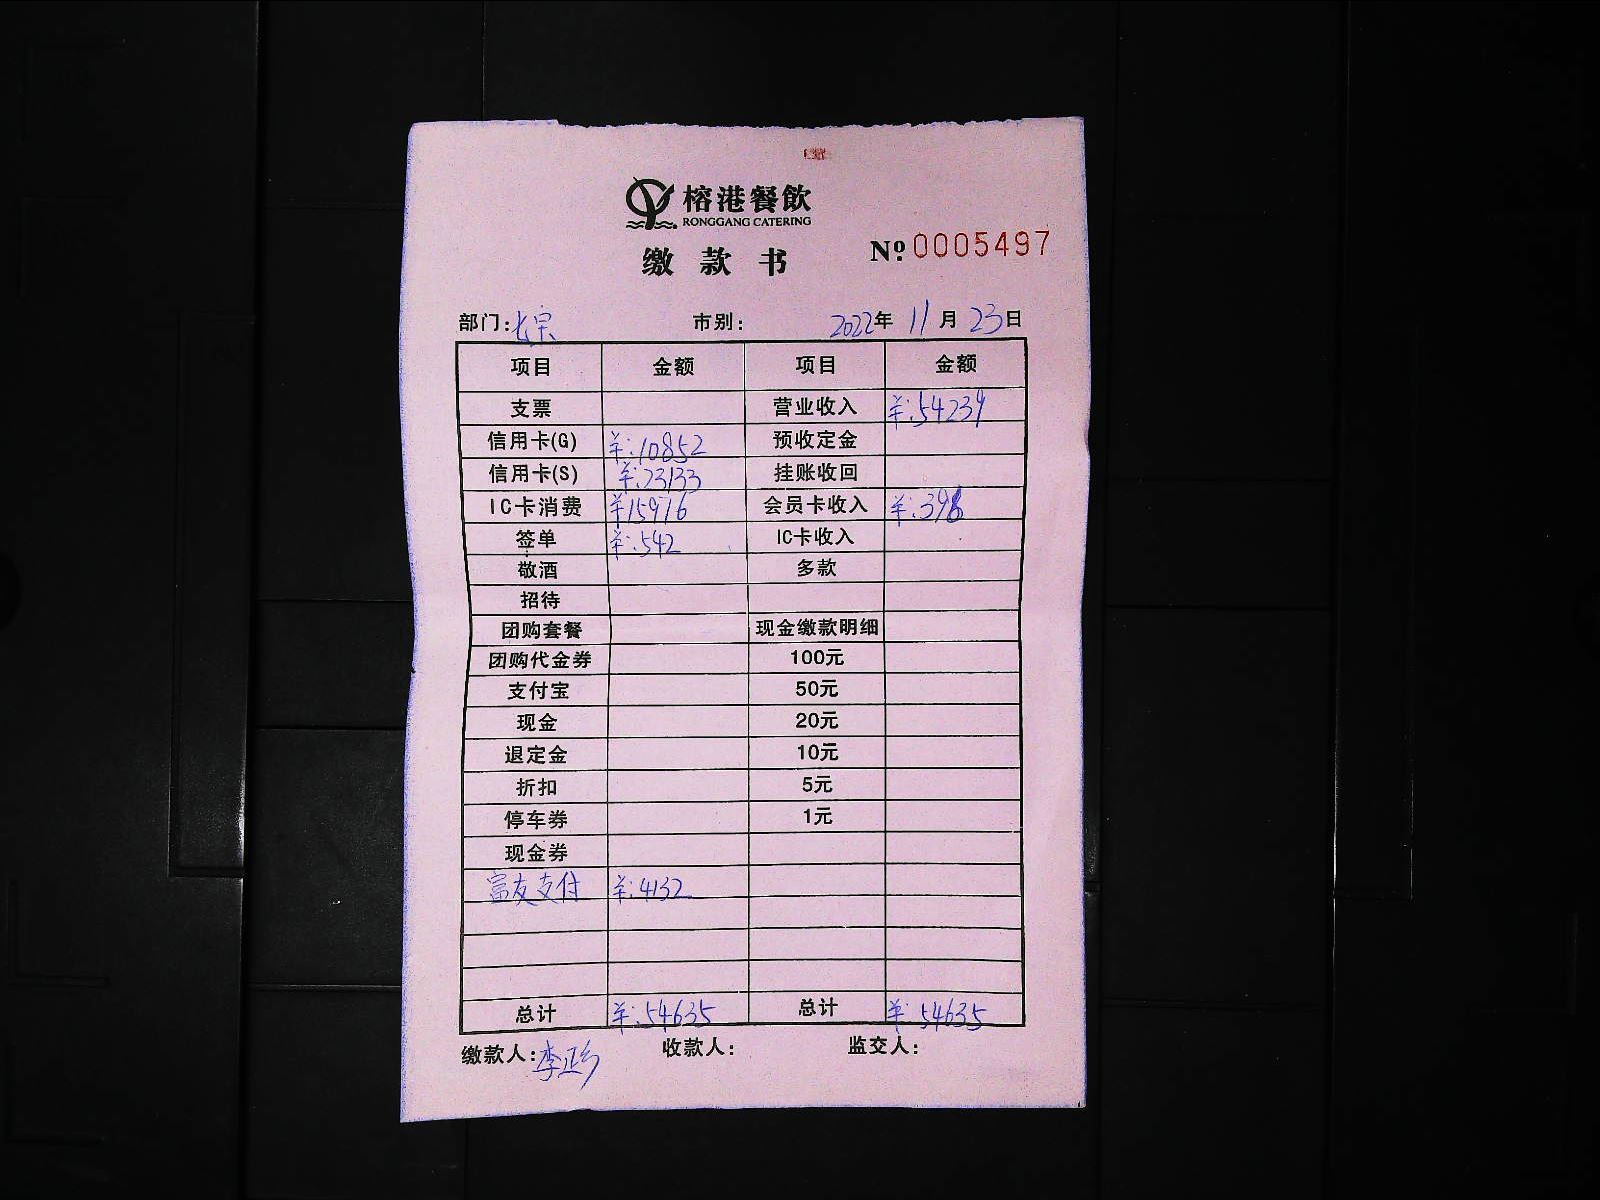 榕港餐飲
RONGGANG CATERING
缴款书
№ 0005497
部门: 市别: 2022年 11月 23日
项目 金额 项目 金额
支票 营业收入 ¥:54239
信用卡(G) ¥:10852 预收定金
信用卡(S) ¥:23133 挂账收回
IC卡消费 ¥15976 会员卡收入 ¥:396
签单 ¥:542 IC卡收入
敬酒 多款
招待
团购套餐 现金缴款明细
团购代金券 100元
支付宝 50元
现金 20元
退定金 10元
折扣 5元
停车券 1元
现金券
富友支付 ¥:4132
总计 ¥:54635 总计 ¥:54635
缴款人:李正 收款人: 监交人: